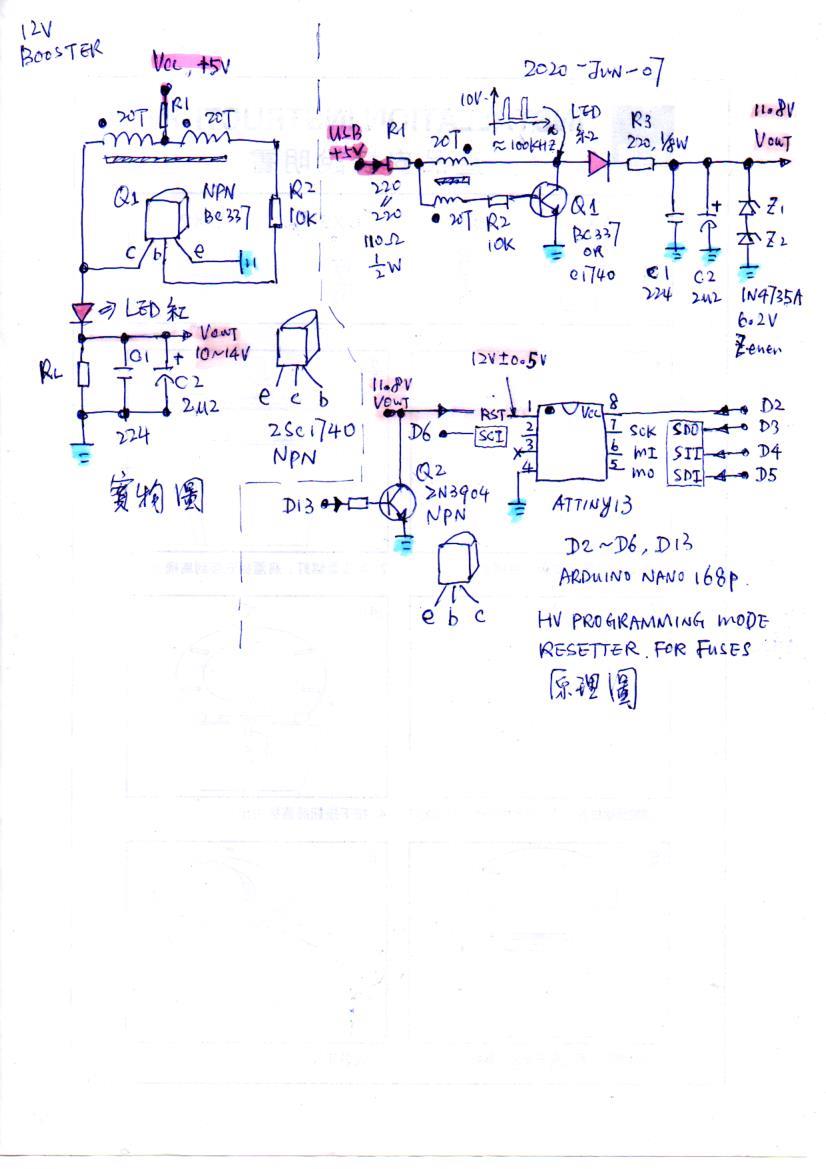 12V
BOOSTER
Vcc, +5V
R1
20T
20T
Q1
NPN
BC337
R2
10K
C
b
e
LED 紅
Vout
10~14V
RL
C1
224
+
C2
2u2
實物圖
e c b
2SC1740
NPN
2020-JUN-07
USB
+5V
R1
220
//
220
110Ω
1/2W
20T
20T
10V
≈100KHZ
LED
紅
R2
10K
Q1
BC337
OR
C1740
R3
220, 1/8W
11.8V
Vout
C1
224
+
C2
2u2
Z1
Z2
1N4735A
6.2V
Zener
11.8V
Vout
12V±0.5V
D6
SCI
RST
1
2
3
4
Vcc
8
7
6
5
SCK
MI
MO
SDO
SII
SDI
D2
D3
D4
D5
ATTINY13
D13
Q2
2N3904
NPN
e b c
D2~D6, D13
ARDUINO NANO 168p.
HV PROGRAMMING MODE
RESETTER FOR FUSES
原理圖